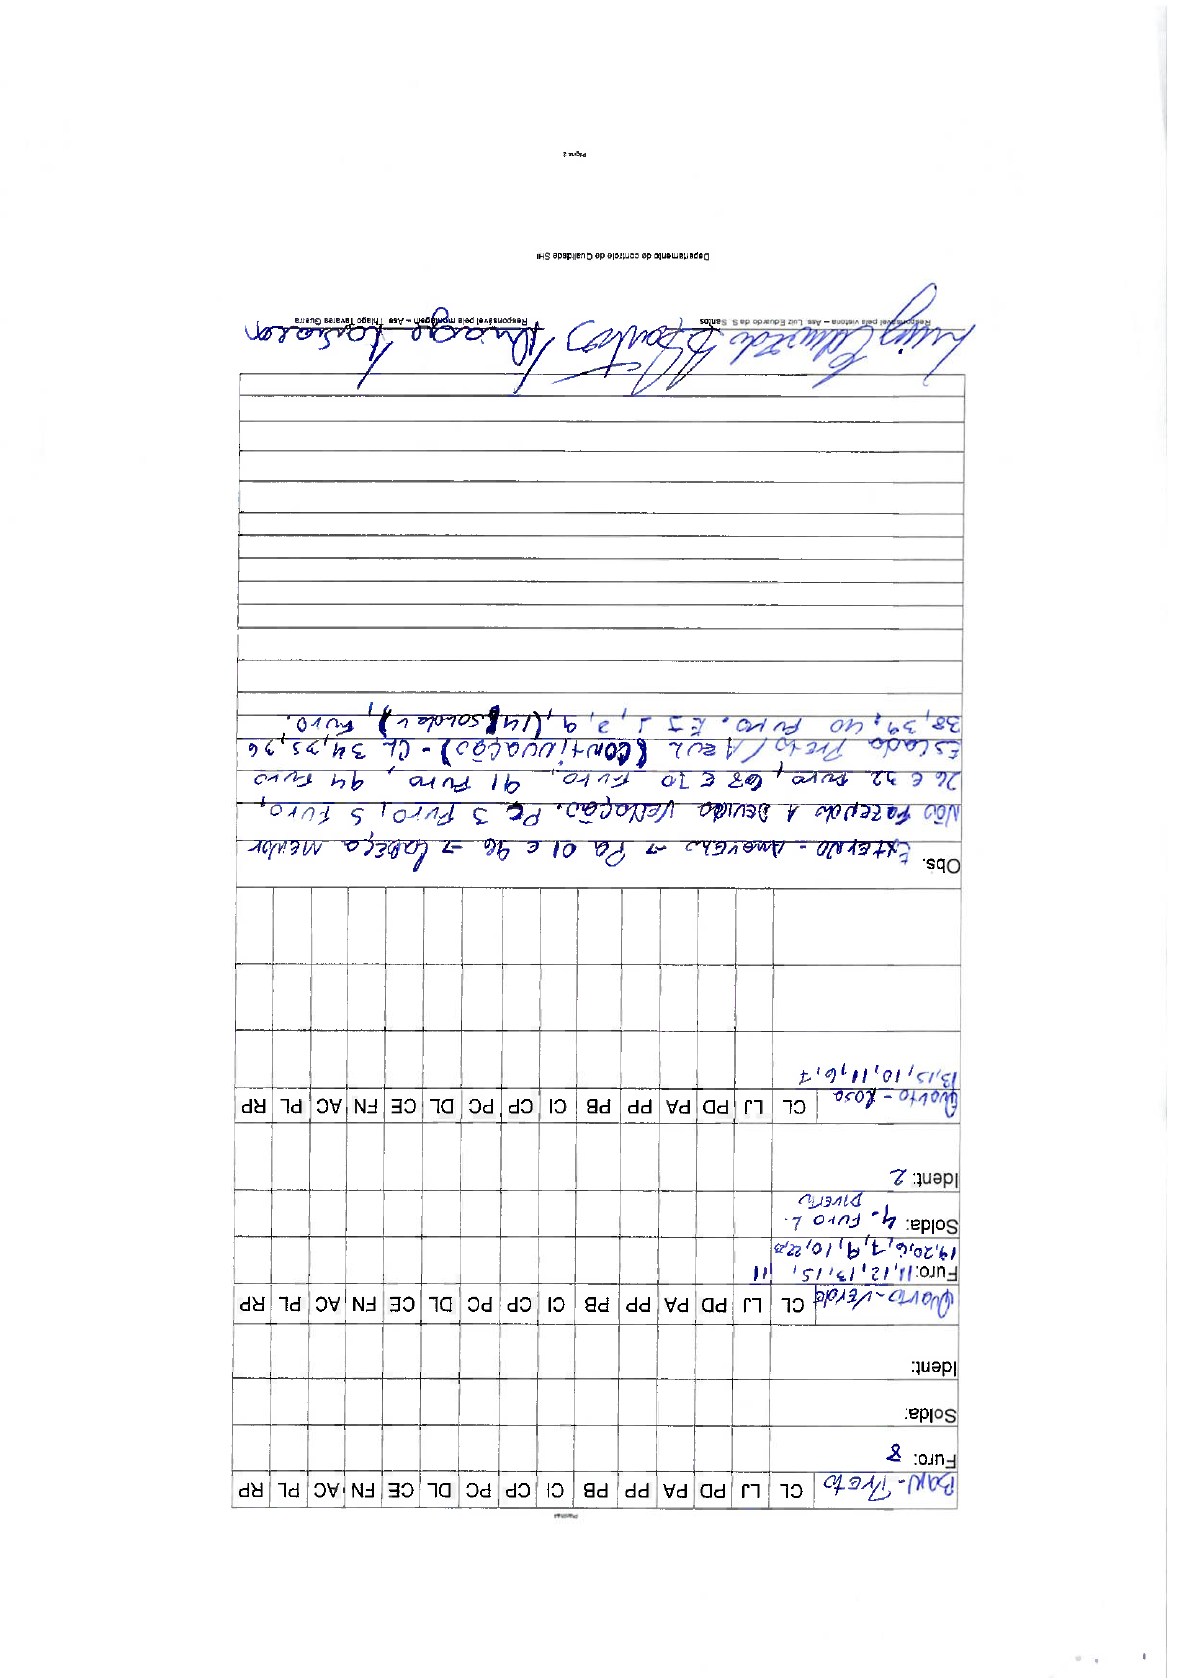 BAN - Preto CL LJ PD PA PP PB CI CP PC DL CE FN AC PL RP
Furo: 8
Solda:
Ident:
Quarto - Verde CL LJ PD PA PP PB CI CP PC DL CE FN AC PL RP
Furo: 11, 12, 13, 15, 11
19, 20, 6, 7, 9, 10, 22, 23
Solda: 4 - Furo L.
Diverto
Ident: 2
Quarto - Rosa CL LJ PD PA PP PB CI CP PC DL CE FN AC PL RP
13, 15, 10, 11, 6, 7
Obs. Externo - Amarelo → Pa 01 e 46 → Cabeça menor
Não fazendo a devida vedação. PC 3 Furo, 5 Furo,
26 e 32 Furo, 68 e 70 Furo, 41 Furo, 44 Furo
Escada Preto / Azul (Continuação) - CL 34, 35, 36
38, 39, 40 Furo. EJ 1, 2, 9, (14 solda L), Furo.
Luiz Eduardo D Santos Thiago Tavares
Responsável pela vistoria – Ass. Luiz Eduardo da S. Santos Responsável pela montagem – Ass. Thiago Tavares Guerra
Departamento de controle de Qualidade SHI
Página 2